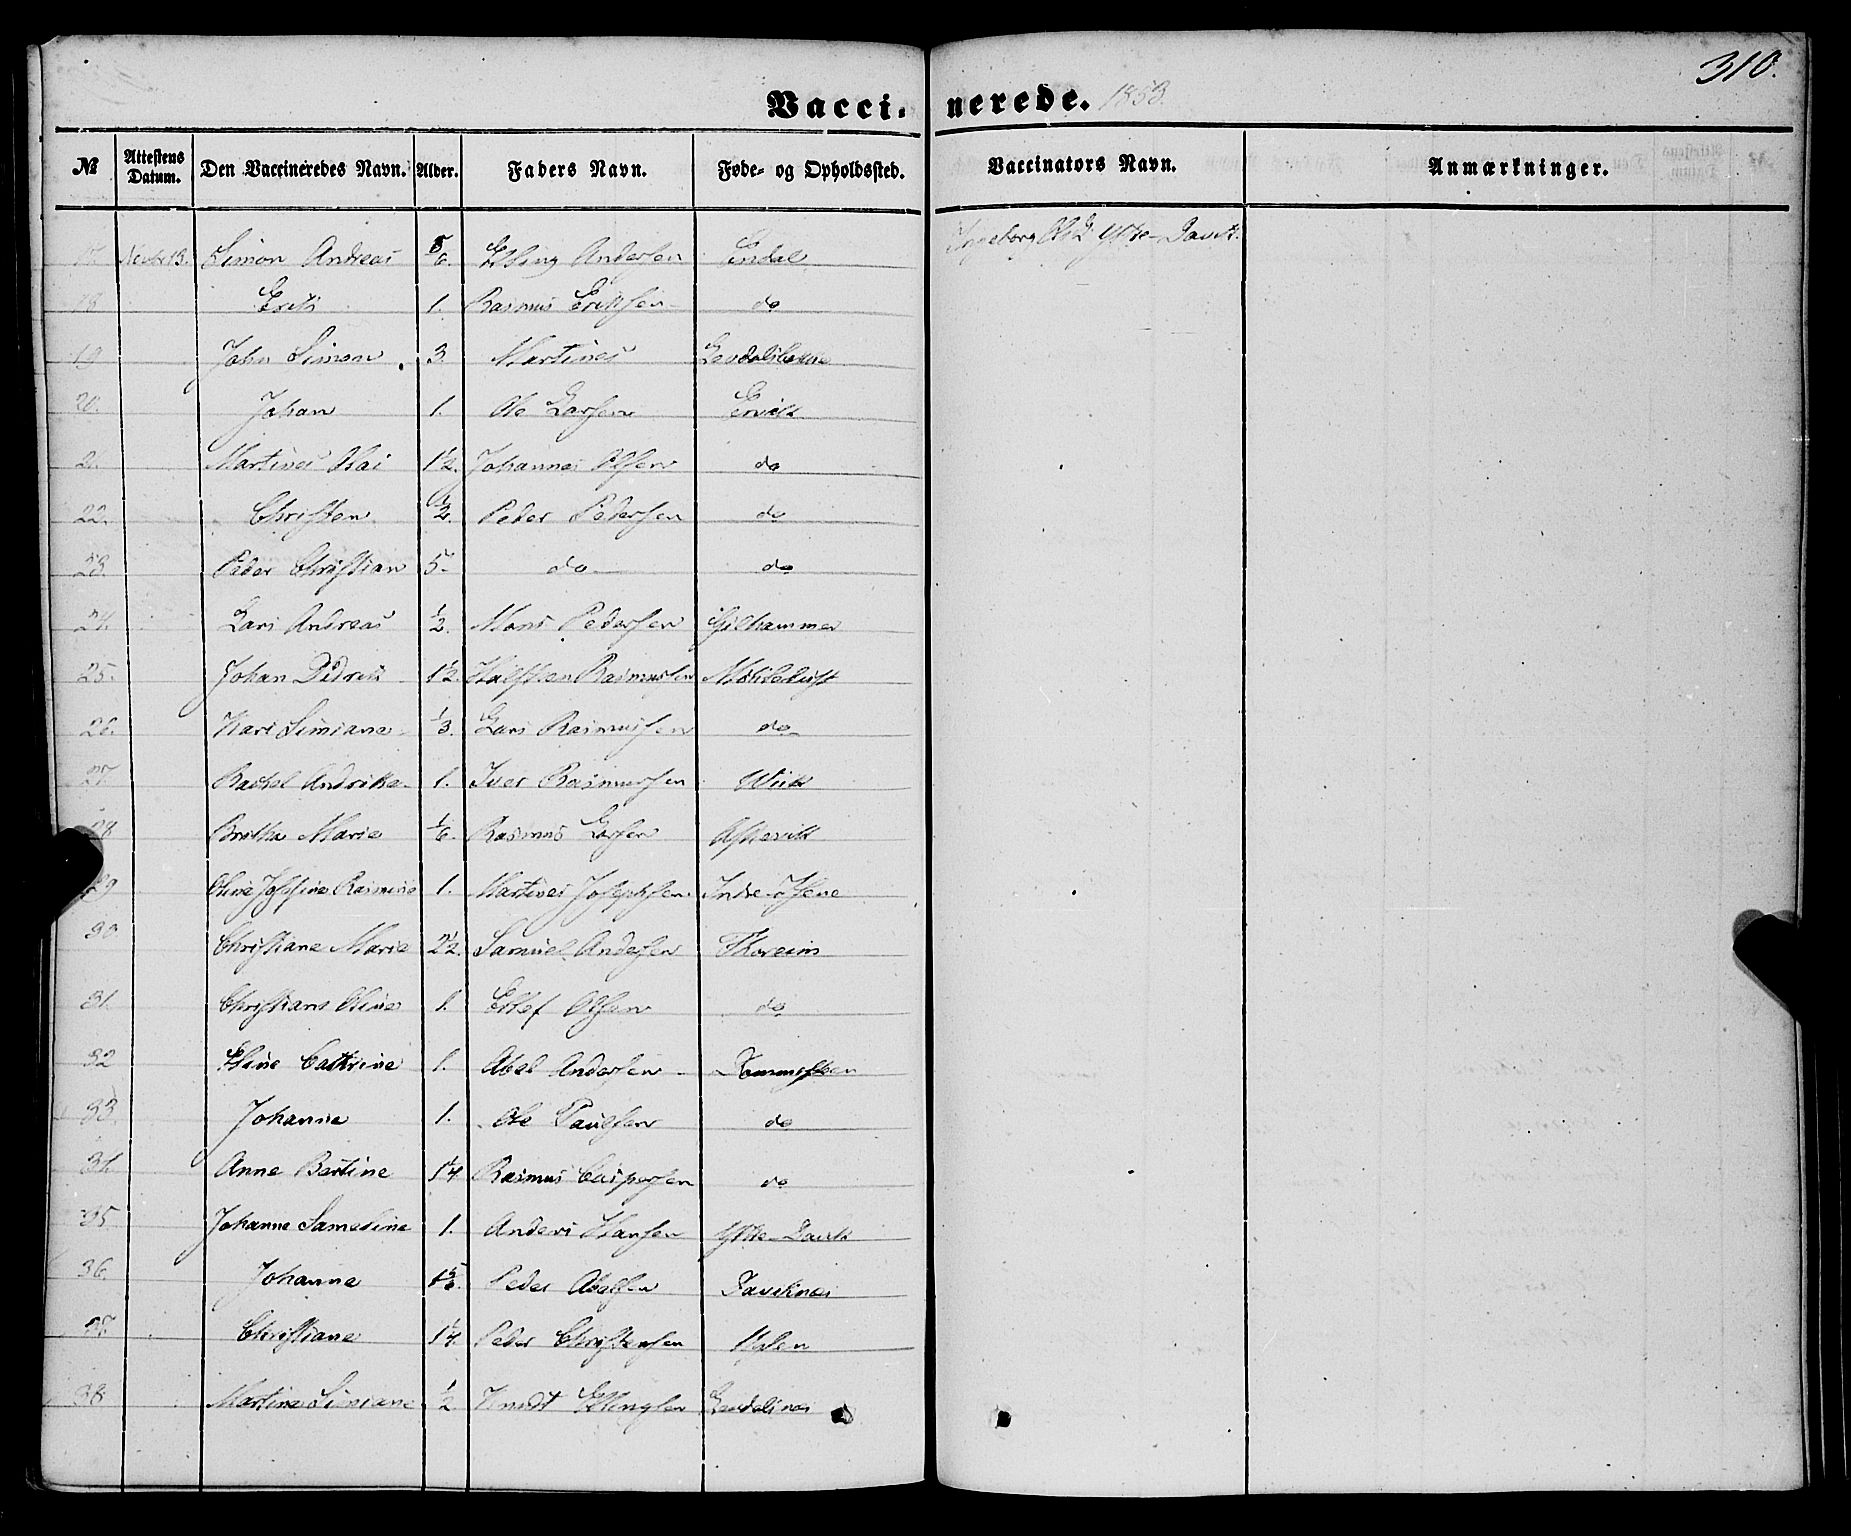 310.
Vaccinerede. 1853.
№ Attestens Datum. Den Vaccineredes Navn. Alder. Faders Navn. Føde- og Opholdssted. Vaccinators Navn. Anmærkninger.
17 Simon Andreas 5/6. Elling Andersen Endal Ingeborg Ytre-Davik.
18 Erik 1. Rasmus Eriksen do
19 John Simon 3. Martines
20. Johan 1. Ole Larsen Ervik
21. Martines 1½. Johannes Olsen do
22. Christen ½. Peder Pedersen do
23. Peder Christian 5. do do
24. Lars Andreas ½. Mons Pedersen
25. Johan Didrik 1½. Halsten Rasmussen
26. Kari Simiane ⅓. Lars Rasmussen do
27. Rachel Andrikke 1. Iver Rasmussen Wiik
28 Brithe Marie ⅙. Rasmus Larsen
29 Oline Josefine Rasmine 1. Martines Josephsen Indre-
30 Christiane Marie 2½. Samuel Andersen Thoreim
31. Christiane Oline 1. Ellef Olsen do
32 Eline Cathrine 1. Abel Andersen
33. Johanne 1. Ole Paulsen do
34. Anne Bertine 1¼ Rasmus Caspersen do
35 Johanne Sameline 1. Anders Hansen Ytre-Davik
36. Johanne Peder Abelsen Daviknes
37. Christiane 1¼. Peder Christensen
38 Martine Simiane ½ Knudt Ellingsen